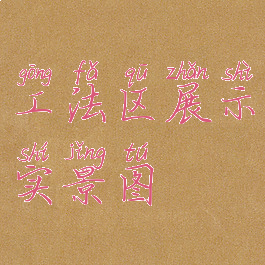 gōng fǎ qū zhǎn shì
工法区展示
shí jǐng tú
实景图